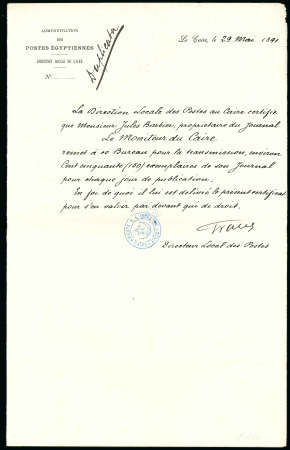 ADMINISTRATION
DES
POSTES ÉGYPTIENNES
DIRECTION LOCALE DU CAIRE
N°
Duplicata
Le Caire, le 29 Mai 1891
La Direction Locale des Postes au Caire certifie
que Monsieur Jules Barbier, propriétaire du Journal
Le Moniteur du Caire
remet à ce Bureau pour la transmission, environ
Cent cinquante (150) exemplaires de son Journal
pour chaque jour de publication.
En foi de quoi il lui est délivré le présent certificat
pour s'en valoir par devant qui de droit.
Directeur Local des Postes